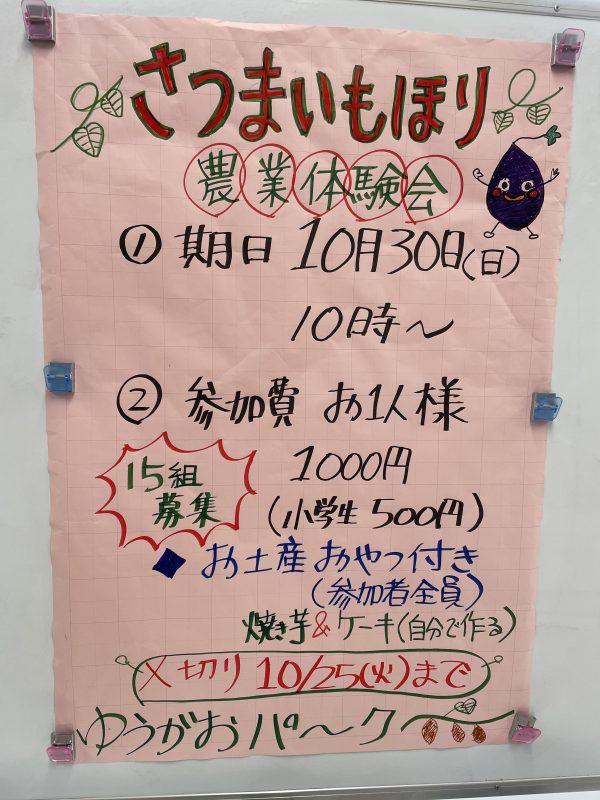 さつまいもほり
農業体験会
① 期日 10月30日(日)
10時〜
② 参加費 お1人様
1000円
(小学生 500円)
15組
募集
◆ お土産おやつ付き
(参加者全員)
焼き芋&ケーキ(自分で作る)
〆切り 10/25(火)まで
ゆうがおパ〜ク